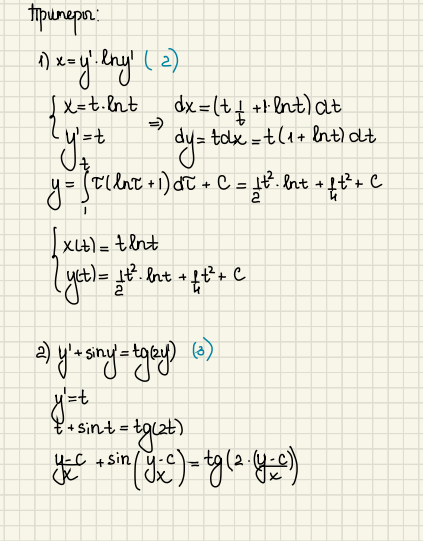 Примеры:
1) x = y' · ln y' (2)
{ x = t · ln t ⇒ dx = (t 1/t + 1 · ln t) dt
{ y' = t dy = t dx = t (1 + ln t) dt
y = ∫₁ᵗ τ (ln τ + 1) dτ + C = 1/2 t² · ln t + 1/4 t² + C
{ x(t) = t ln t
{ y(t) = 1/2 t² · ln t + 1/4 t² + C
2) y' + sin y' = tg(2y') (3)
y' = t
t + sin t = tg(2t)
(y-c)/x + sin((y-c)/x) = tg(2 · ((y-c)/x))